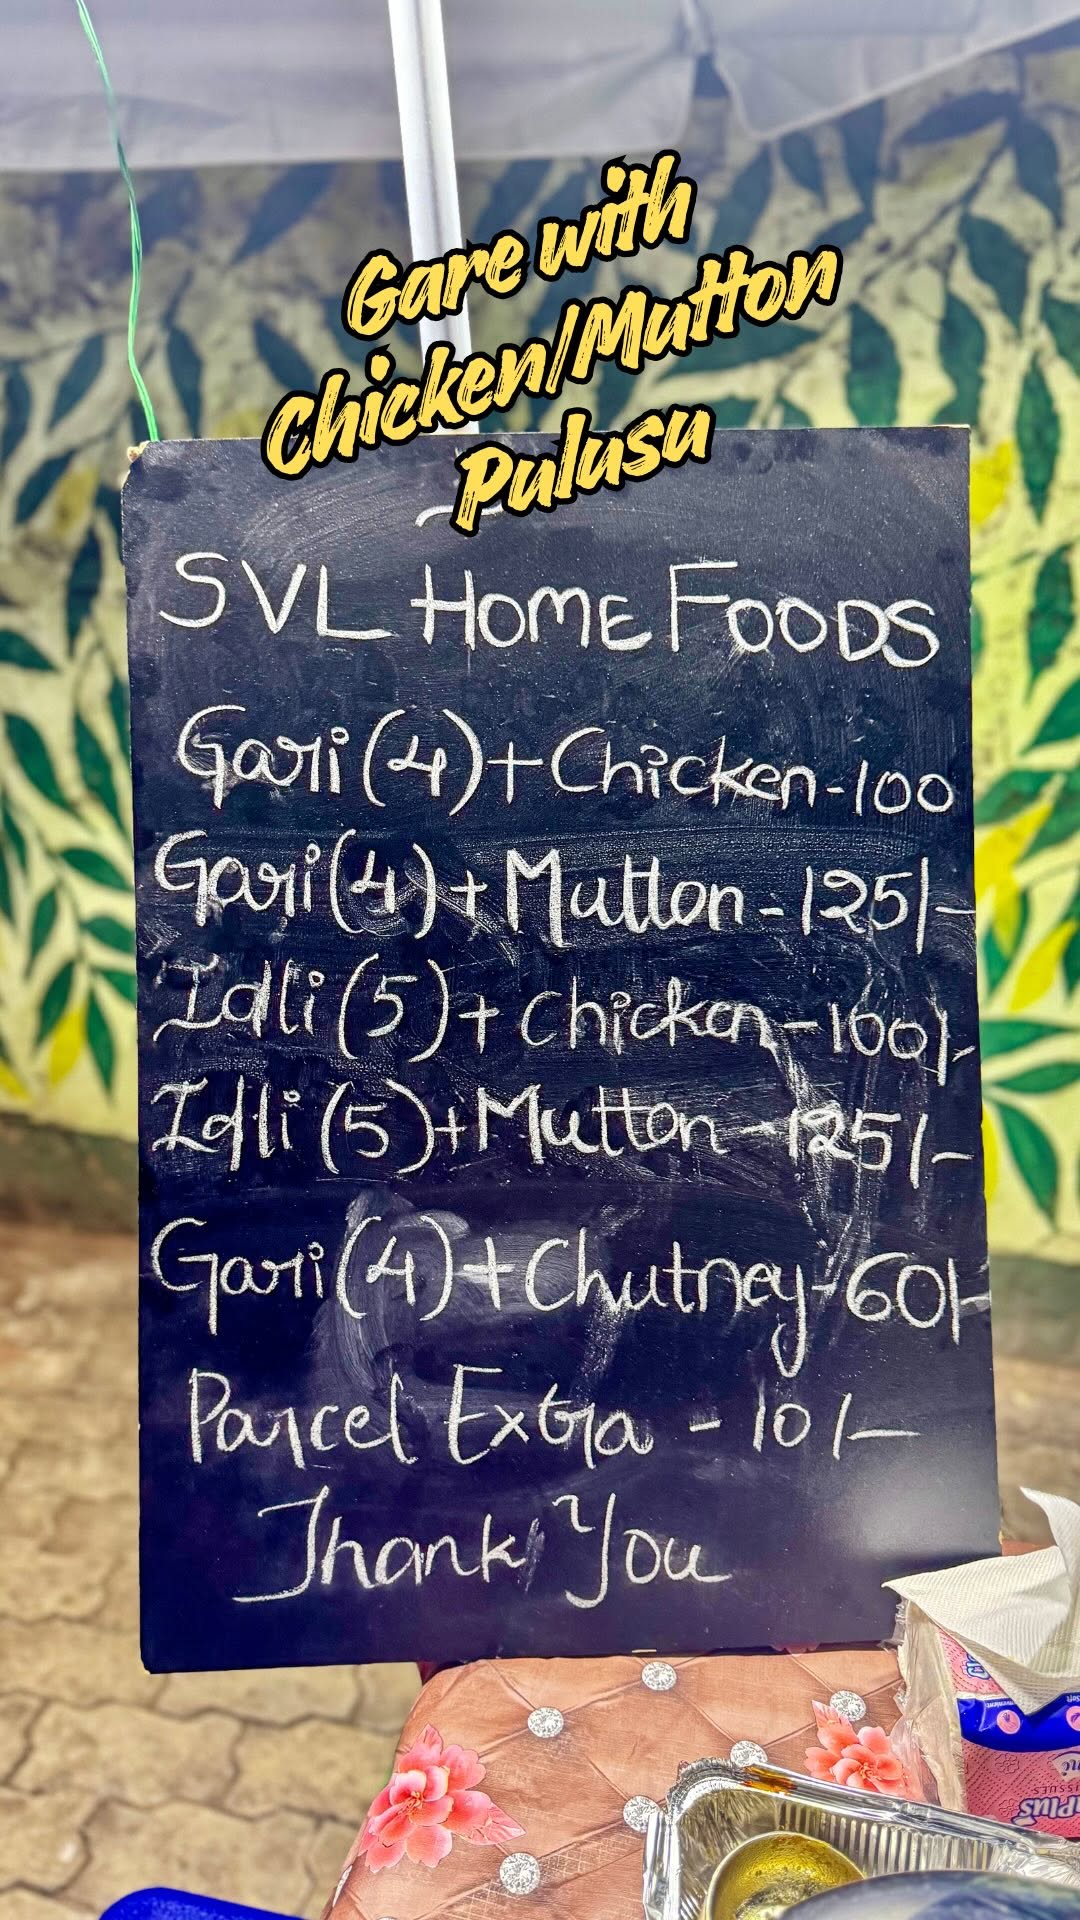 Gare with
Chicken/Mutton
Pulusu
SVL HOME FOODS
Gari (4) + Chicken - 100
Gari (4) + Mutton - 125/-
Idli (5) + Chicken - 100/-
Idli (5) + Mutton - 125/-
Gari (4) + Chutney - 60/-
Parcel Extra - 10/-
Thank You